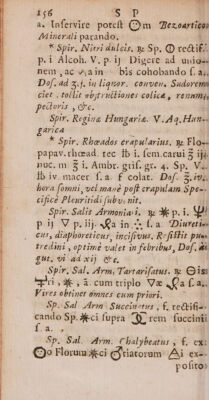 156 S P
a. Inservire potest 🜔m Bezoartico
Minerali parando.
* Spir. Nitri dulcis. ℞ Sp. 🜕 rectif.
p. i Alcoh. V. p. ij Digere ad unio-
nem, ac in bis cohobando s. a.
Dos. ad ʒ. j. in liquor. conven. Sudorem
ciet, tollit obstructiones colicæ, renum,
pectoris, &c.
Spir. Reginæ Hungariæ. V. Aq. Hun-
garica
* Spir. Rhœados crapularius. ℞ Flo-
papav. rhœad. rec ℔ i. sem. carui ℥ ii
nuc. m ℥ i. Ambr. grif. gr. 4. Sp. V.
℔ iv macer s. a f colat. Dos. ℥. iv.
hora somni, vel manè post crapulam Spe-
cificè Pleuritidi subv: nit.
Spir. Salis Armoniaci. ℞ ✶ p. i.
p ij 🜄 p. iij. in s. a Diureti-
cus, diaphoreticus, incisivus. Resistit pu-
tredini, optimè valet in febribus, Dos. à
gut. vi ad xij &c.
Spir. Sal. Arm. Tartarisatus. ℞
ri, ✶, ā cum triplo s. a.
Vires obtinet omnes cum priori.
Sp. Sal Arm Succinatus, f. rectifi-
cando Sp. ✶ci supra rem succinii
s. a.
Sp. Sal. Arm. Chalybeatus, f. ex
o Florum ✶ci iatorum i ex-
posito